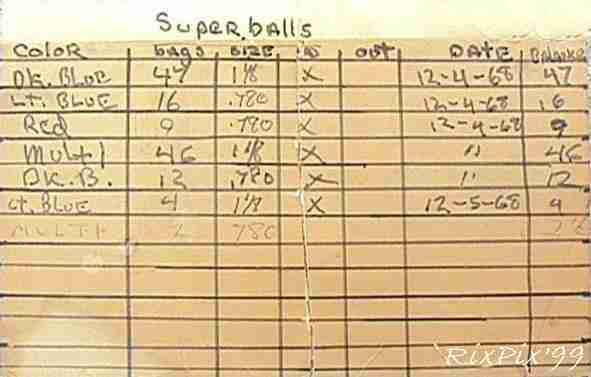 Super balls
Color bags SIZE IN OUT DATE Balance
DK. BLUE 47 1 1/8 X 12-4-68 47
LT. BLUE 16 .780 X 12-4-68 16
Red 9 .780 X 12-4-68 9
Multi 46 1 1/8 X " 46
DK. B. 12 .780 X " 12
LT. BLUE 4 1 1/8 X 12-5-68
MULTI 780
RixPix'99